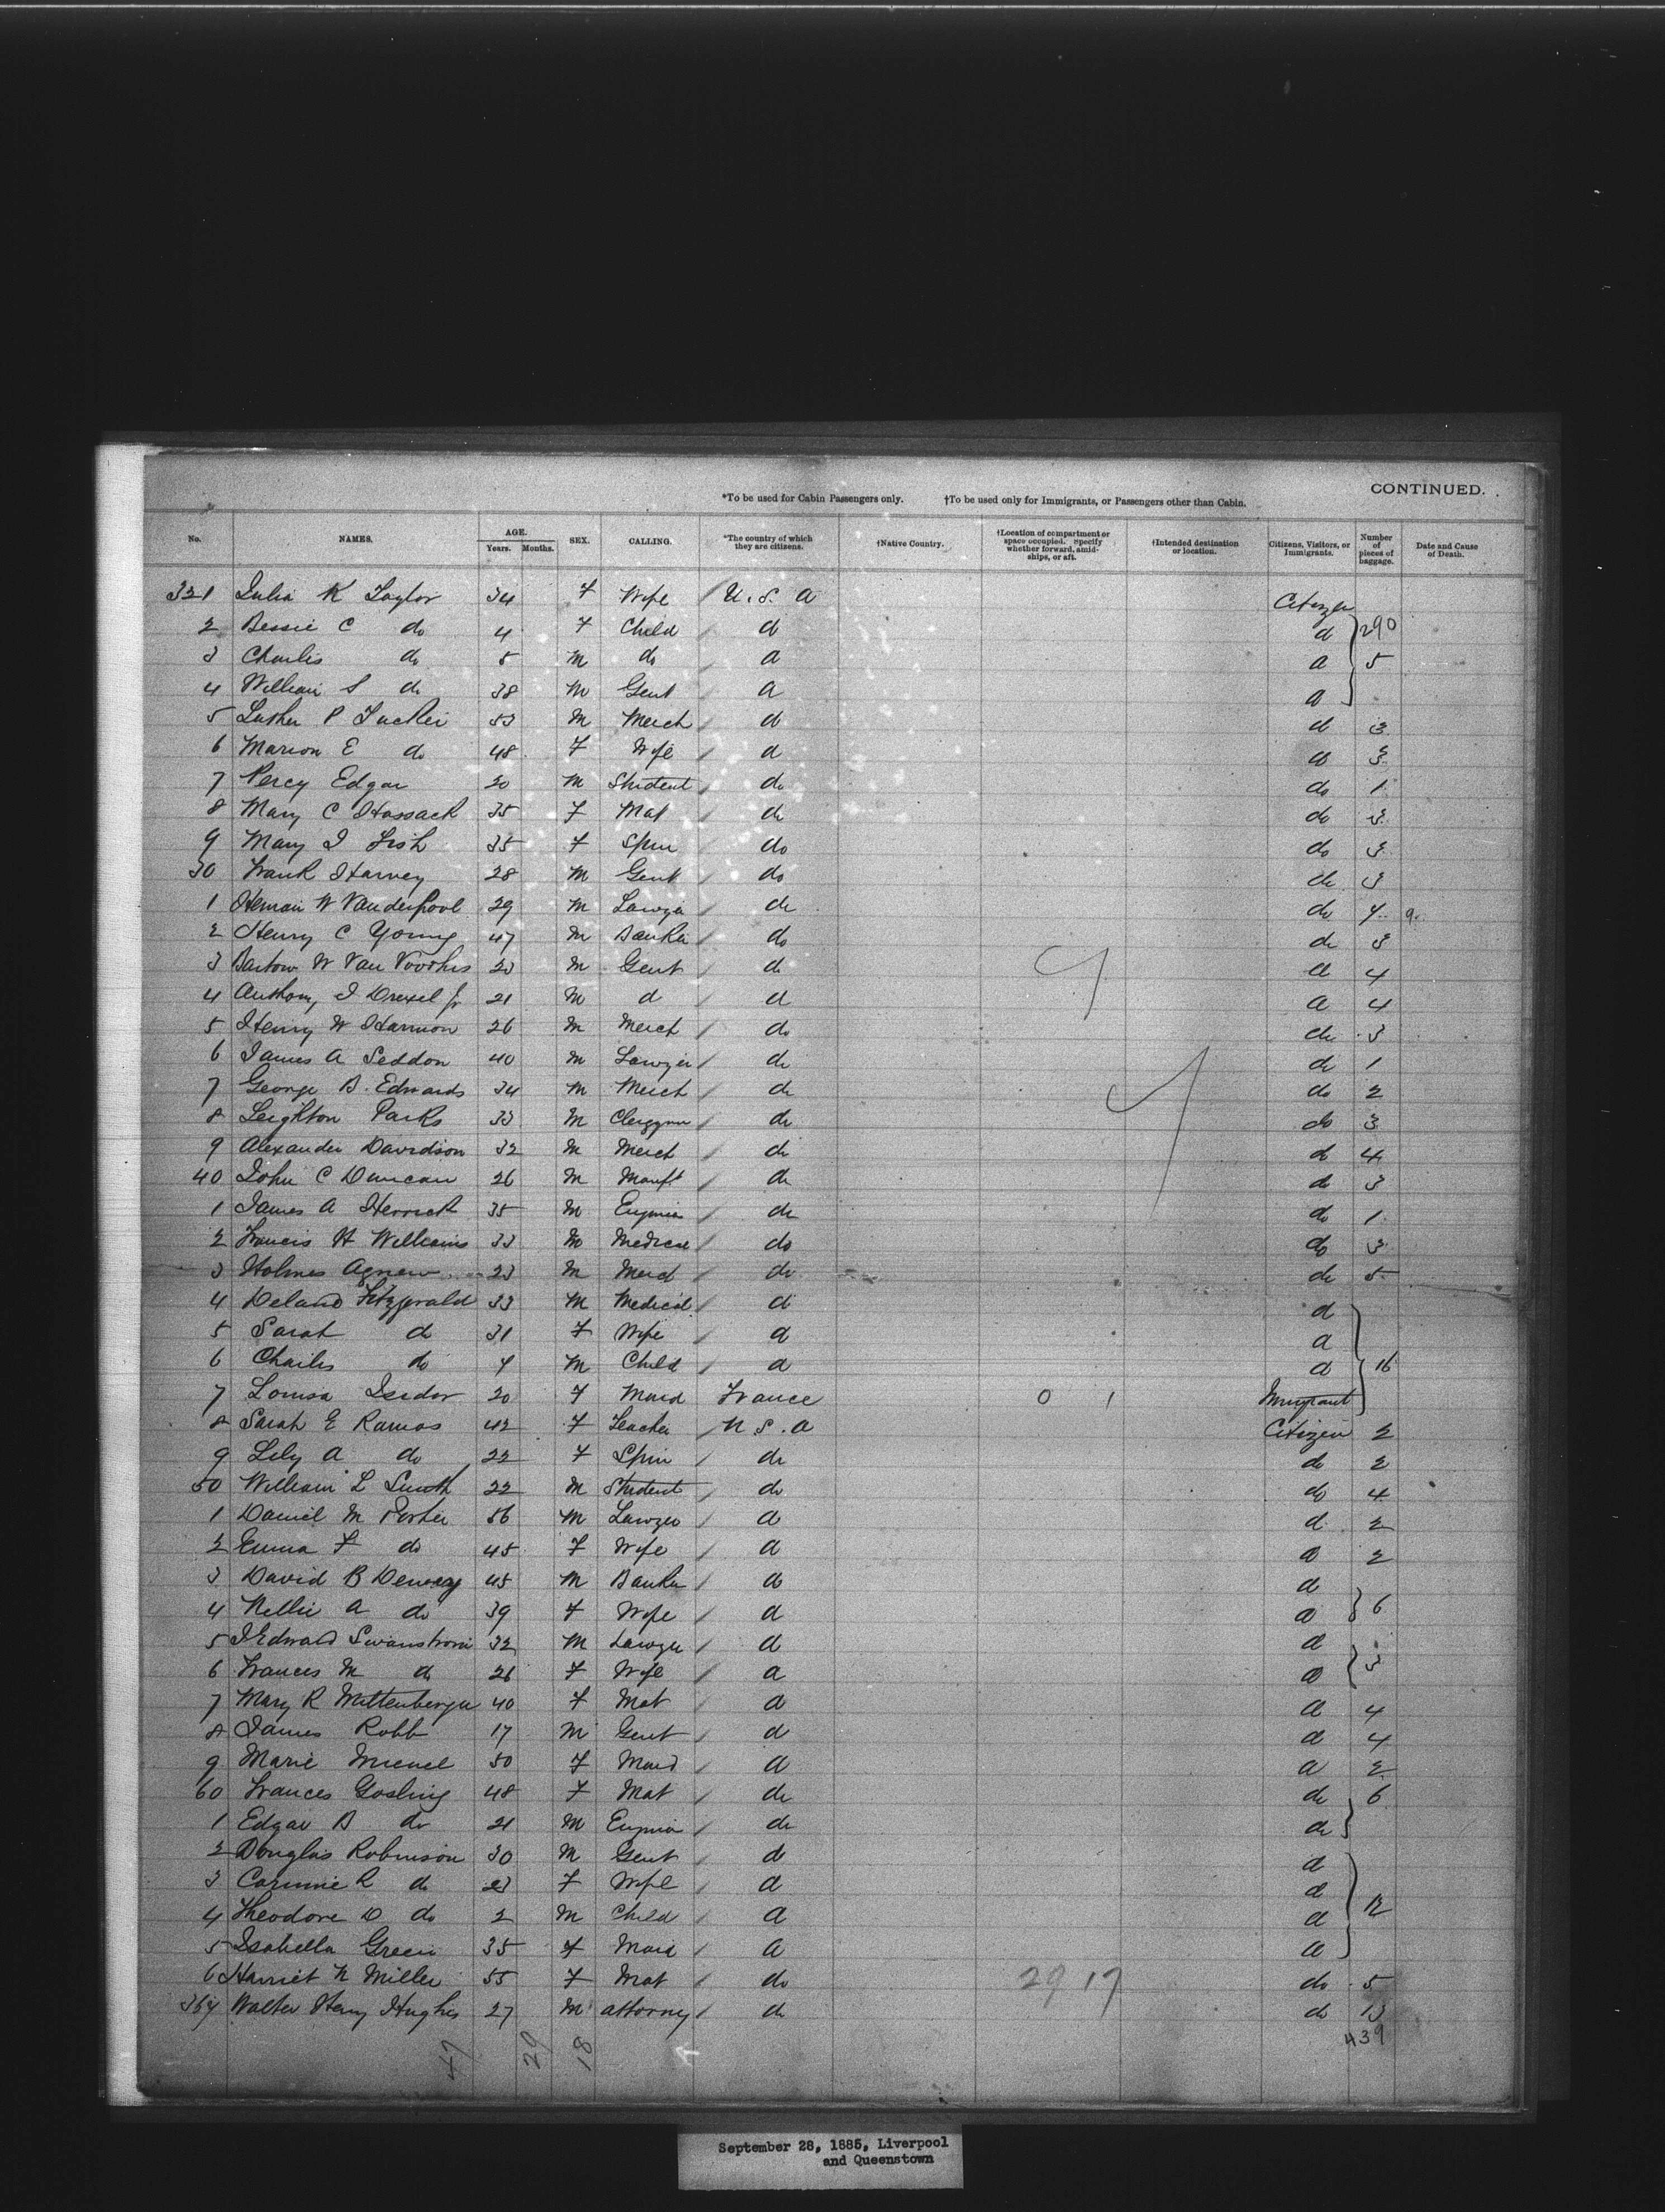 CONTINUED.
*To be used for Cabin Passengers only. †To be used only for Immigrants, or Passengers other than Cabin.
No. NAMES. AGE. Years. Months. SEX. CALLING. *The country of which they are citizens. †Native Country. †Location of compartment or space occupied. Specify whether forward, amidships, or aft. †Intended destination or location. Citizens, Visitors, or Immigrants. Number of pieces of baggage. Date and Cause of Death.
321 Julia K Taylor 34 F Wife U.S.A Citizen
2 Bessie C do 4 F Child do do 290
3 Charles do 5 M do do do 5
4 William S do 38 M Gent do do
5 Luther P Tucker 53 M Merch do do 3
6 Marion E do 48 F Wife do do 3
7 Percy Edgar 20 M Student do do 1
8 Mary C Hossack 35 F Mat do do 3
9 Mary I Fish 35 F Spin do do 3
30 Frank Harvey 28 M Gent do do 3
1 Heman W Vanderpool 29 M Lawyer do do
2 Henry C Young 47 M Banker do do 3
3 Bartow W Van Voorhis 23 M Gent do do 4
4 Anthony J Drexel Jr 21 M do do do 4
5 Henry W Harmon 26 M Merch do do 3
6 James A Seddon 40 M Lawyer do do 1
7 George B. Edwards 34 M Merch do do 2
8 Leighton Parks 33 M Clergymn do do 3
9 Alexander Davidson 32 M Merch do do 4
40 John C Duncan 26 M Manft do do 3
1 James A Herrick 35 M Engineer do do 1
2 Francis H Williams 33 M Medical do do 3
3 Holmes Agnew 23 M Merch do do 5
4 Deland Fitzgerald 33 M Medical do do
5 Sarah do 31 F Wife do do
6 Charles do M Child do do 16
7 Louisa Isidor 20 F Maid France 0 1 Immigrant
8 Sarah E Ramos 42 F Teacher U.S.A Citizen 2
9 Lily A do 22 F Spin do do 2
50 William L Smith 22 M Student do do 4
1 Daniel M Porter 56 M Lawyer do do 2
2 Emma F do 45 F Wife do do 2
3 David B Dewey 45 M Banker do do
4 Nellie A do 39 F Wife do do 6
5 J Edward Swanstrom 32 M Lawyer do do
6 Frances M do 26 F Wife do do 3
7 Mary R Wittenberger 40 F Mat do do 4
8 James Robb 17 M Gent do do 4
9 Marie 50 F Maid do do 2
60 Frances Gosling 48 F Mat do do 6
1 Edgar B do 21 M Engineer do do
2 Douglas Robinson 30 M Gent do do
3 Corinne R do 23 F Wife do do
4 Theodore D do 2 M Child do do 12
5 Isabella Green 35 F Maid do do
6 Harriet N Miller 55 F Mat do 29 17 do 5
367 Walter Henry Hughes 27 M Attorney do do 13
47 29 18 439
September 28, 1885, Liverpool
and Queenstown